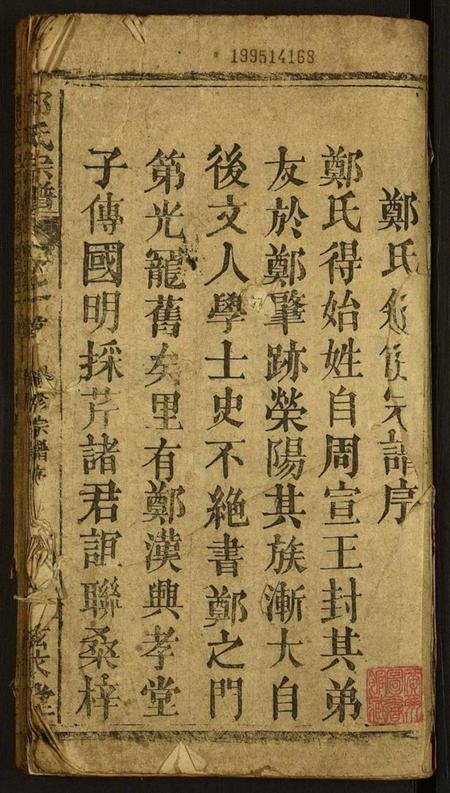 199514168
鄭氏
序
鄭氏得始姓自周宣王封其弟
友於鄭肇跡榮陽其族漸大自
後文人學士史不絶書鄭之門
第光寵舊矣里有鄭漢興孝堂
子傳國明採芹諸君誼聯桑梓
鄭氏宗譜